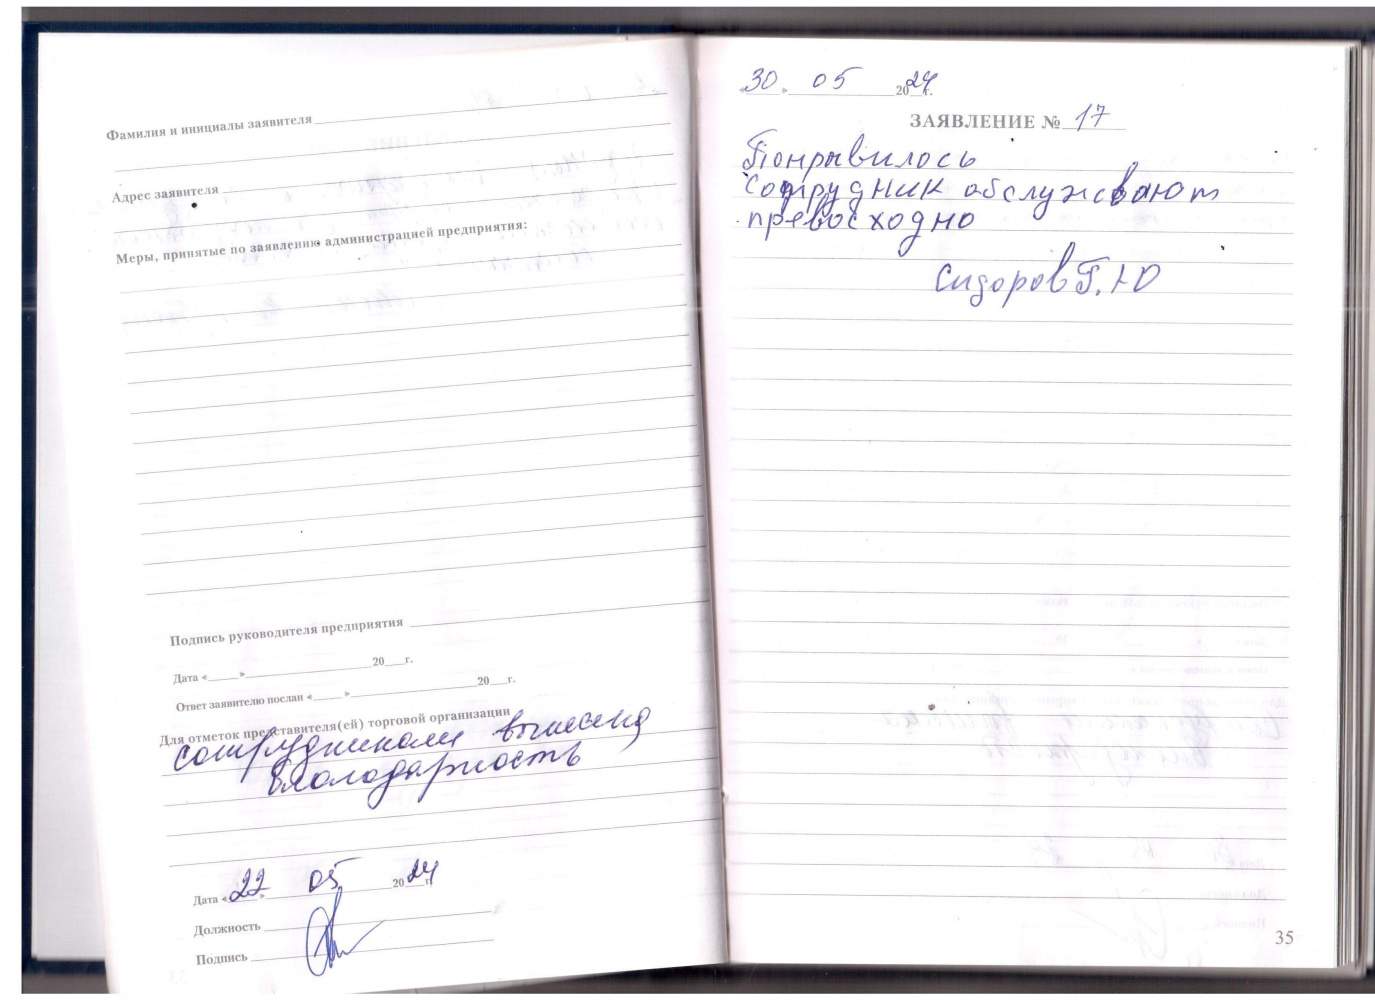 Фамилия и инициалы заявителя
Адрес заявителя
Меры, принятые по заявлению администрацией предприятия:
Подпись руководителя предприятия
Дата «____»____________20___г.
Ответ заявителю послан «____»____________20___г.
Для отметок представителя(ей) торговой организации
сотрудникам вынесена
благодарность
Дата «22» 05 2024 г.
Должность
Подпись
«30» 05 2024 г.
ЗАЯВЛЕНИЕ № 17
Понравилось
сотрудник обслужсвают
превосходно
Сидоров П.Ю
35